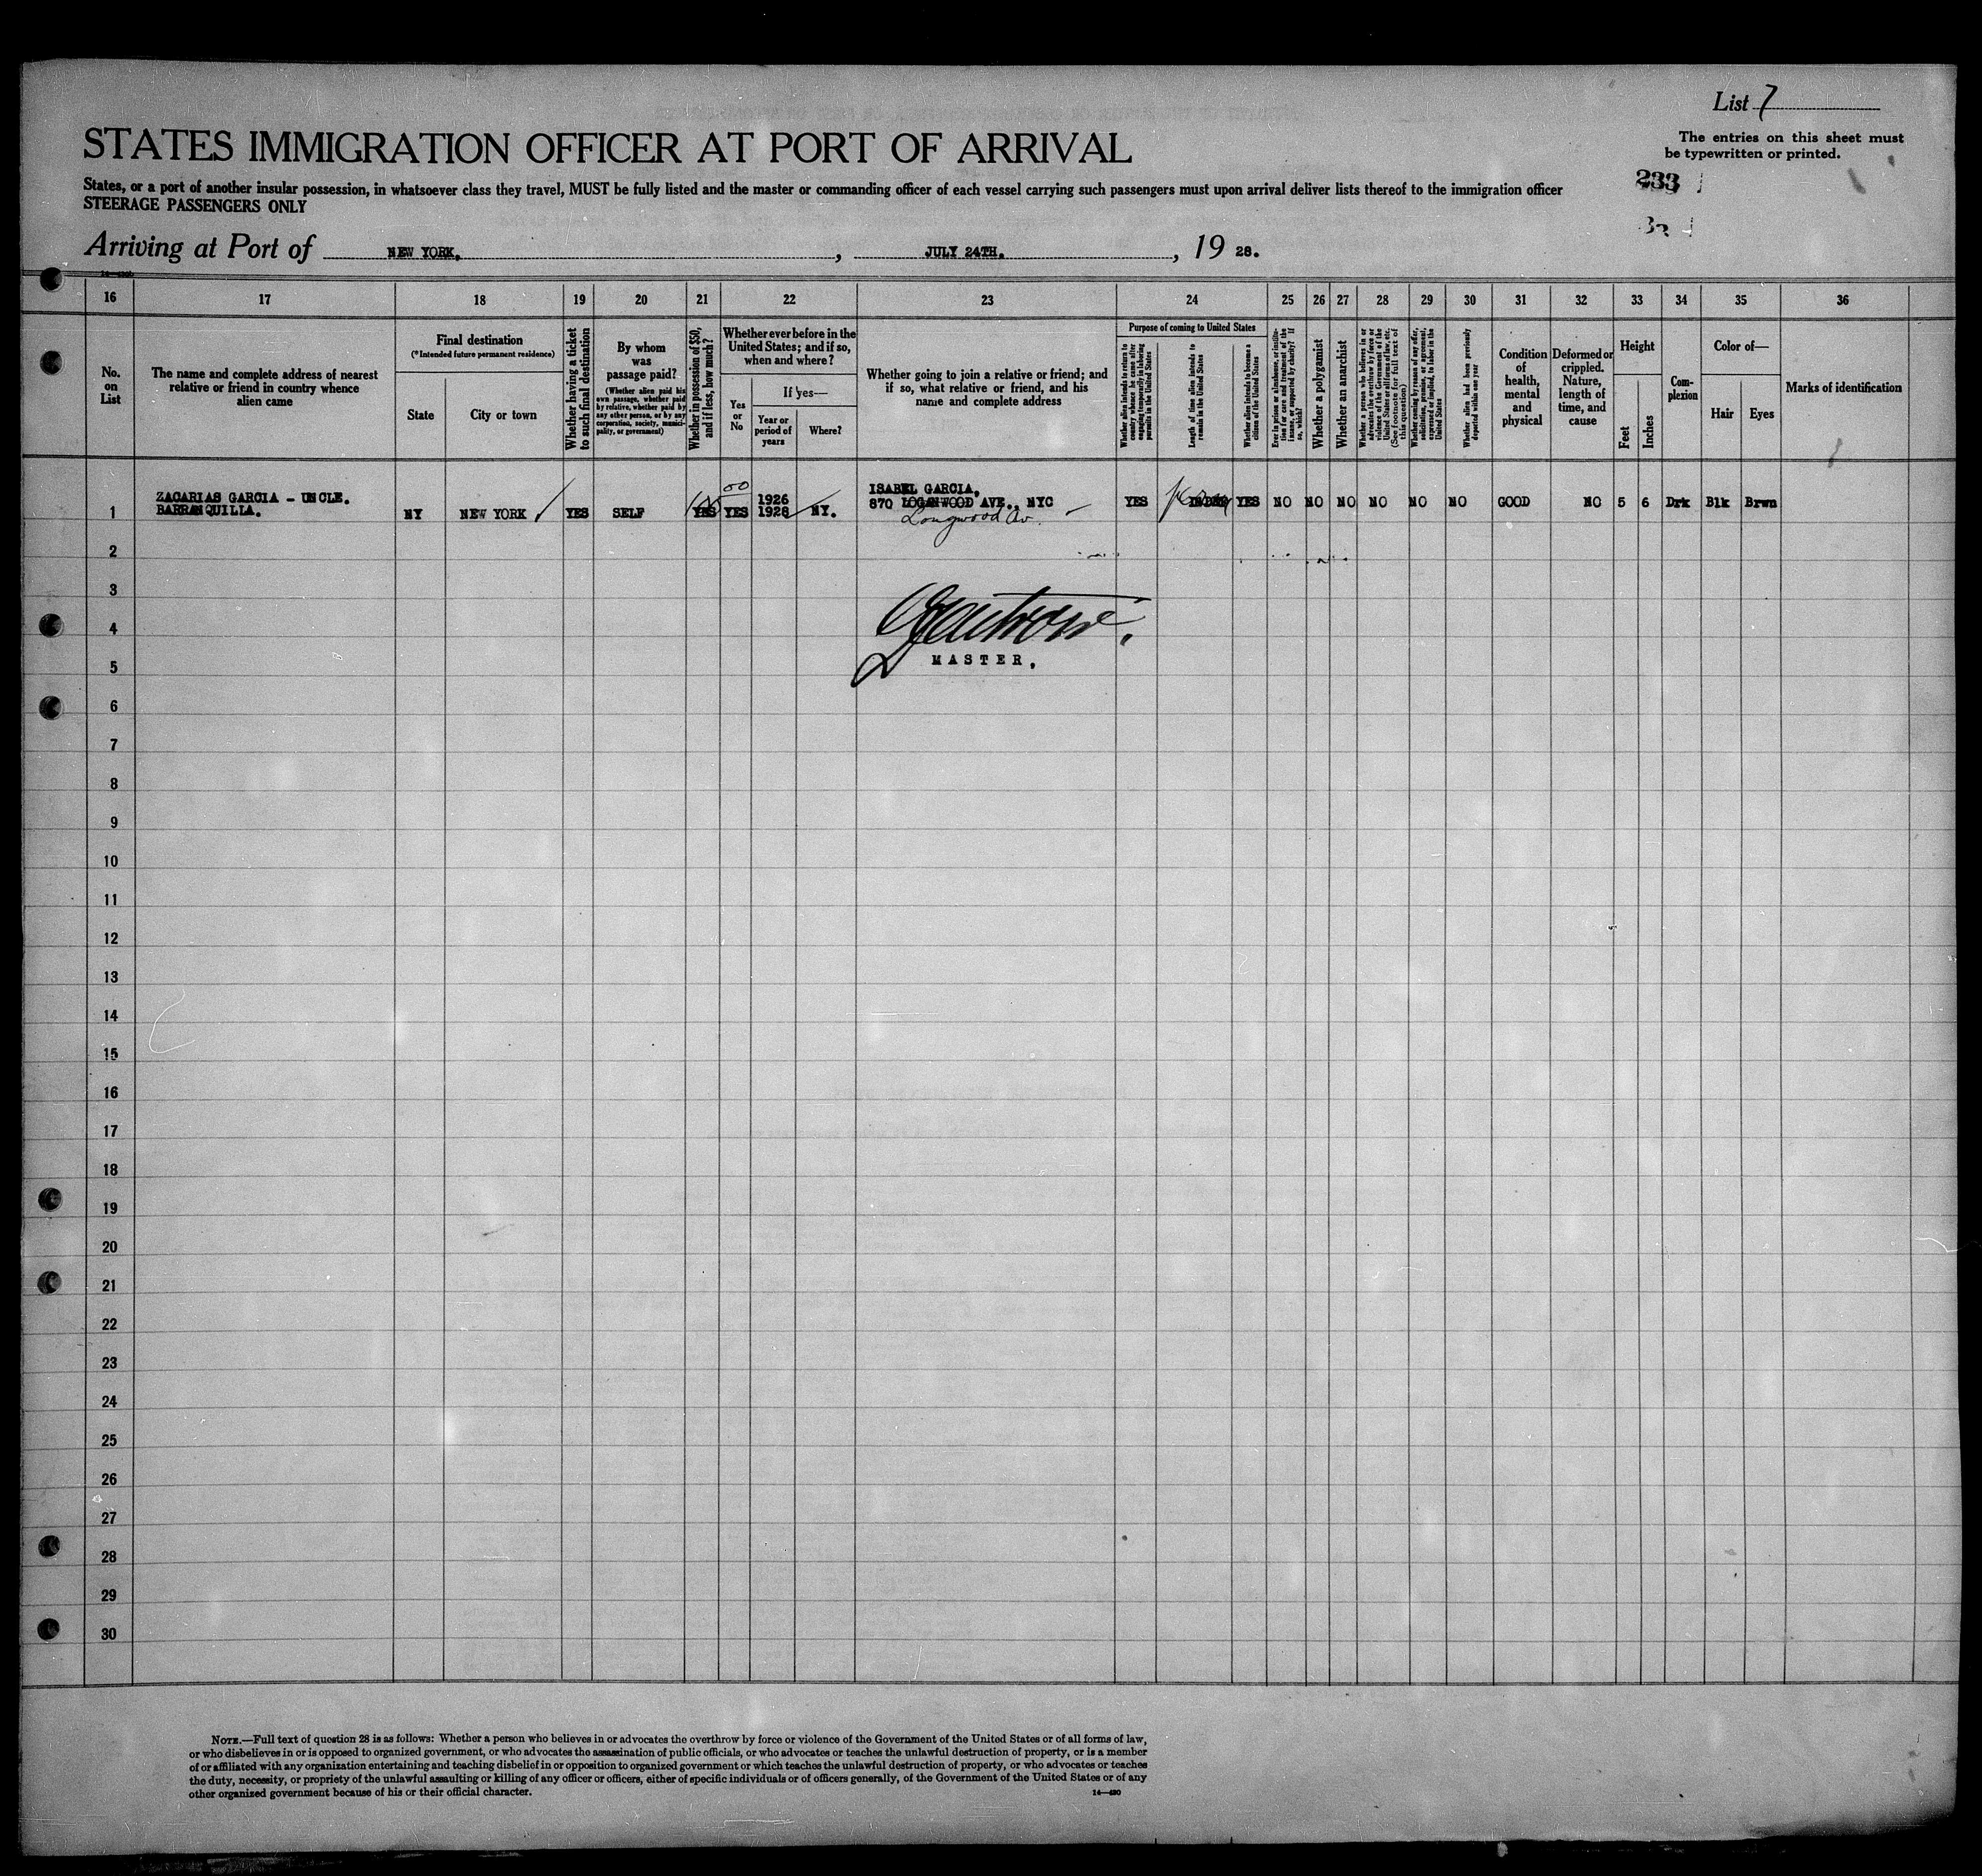 List 7
The entries on this sheet must
be typewritten or printed.
STATES IMMIGRATION OFFICER AT PORT OF ARRIVAL
233
States, or a port of another insular possession, in whatsoever class they travel, MUST be fully listed and the master or commanding officer of each vessel carrying such passengers must upon arrival deliver lists thereof to the immigration officer
STEERAGE PASSENGERS ONLY
Arriving at Port of NEW YORK, , JULY 24TH. , 19 28.
16 17 18 19 20 21 22 23 24 25 26 27 28 29 30 31 32 33 34 35 36
No.
on
List
The name and complete address of nearest
relative or friend in country whence
alien came
Final destination
(*Intended future permanent residence)
State
City or town
Whether having a ticket
to such final destination
By whom
was
passage paid?
(Whether alien paid his
own passage, whether paid
by relative, whether paid by
any other person, or by any
corporation, society, munici-
pality, or government)
Whether in possession of $50,
and if less, how much?
Whether ever before in the
United States; and if so,
when and where?
Yes
or
No
If yes—
Year or
period of
years
Where?
Whether going to join a relative or friend; and
if so, what relative or friend, and his
name and complete address
Purpose of coming to United States
Whether alien intends to return to
country whence he came after
engaging temporarily in laboring
pursuits in the United States
Length of time alien intends to
remain in the United States
Whether alien intends to become a
citizen of the United States
Ever in prison or almshouse, or institu-
tion for care and treatment of the
insane, or supported by charity? If
so, which?
Whether a polygamist
Whether an anarchist
Whether a person who believes in or
advocates the overthrow by force or
violence of the Government of the
United States or all forms of law, etc.
(See footnote for full text of
this question)
Whether coming by reason of any offer,
solicitation, promise, or agreement,
expressed or implied, to labor in the
United States
Whether alien had been previously
deported within one year
Condition
of
health,
mental
and
physical
Deformed or
crippled.
Nature,
length of
time, and
cause
Height
Feet
Inches
Com-
plexion
Color of—
Hair
Eyes
Marks of identification
ZACARIAS GARCIA - UNCLE.
BARRANQUILLA.
1 NY NEW YORK YES SELF YES YES
1926
1928 NY.
ISABEL GARCIA,
870 LOGANWOOD AVE., NYC
Longwood Av.
YES YES NO NO NO NO NO NO GOOD NO 5 6 Drk Blk Brwn
2
3
4
MASTER.
5
6
7
8
9
10
11
12
13
14
15
16
17
18
19
20
21
22
23
24
25
26
27
28
29
30
NOTE.—Full text of question 28 is as follows: Whether a person who believes in or advocates the overthrow by force or violence of the Government of the United States or of all forms of law,
or who disbelieves in or is opposed to organized government, or who advocates the assassination of public officials, or who advocates or teaches the unlawful destruction of property, or is a member
of or affiliated with any organization entertaining and teaching disbelief in or opposition to organized government or which teaches the unlawful destruction of property, or who advocates or teaches
the duty, necessity, or propriety of the unlawful assaulting or killing of any officer or officers, either of specific individuals or of officers generally, of the Government of the United States or of any
other organized government because of his or their official character.
14—430